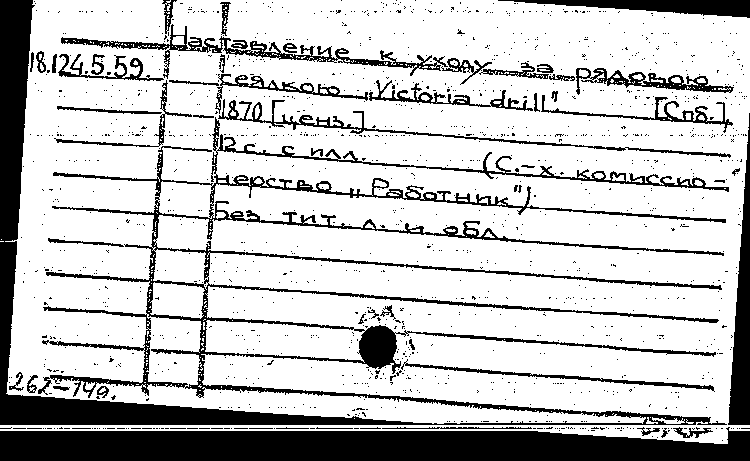 Наставление к уходу за рядовою
18.124.5.59.
сеялкою „Victoria drill". [Спб.],
1870 [ценз.].
12 с. с илл. (С.-х. комиссио-
нерство „Работник").
Без тит. л. и обл.
262-149.